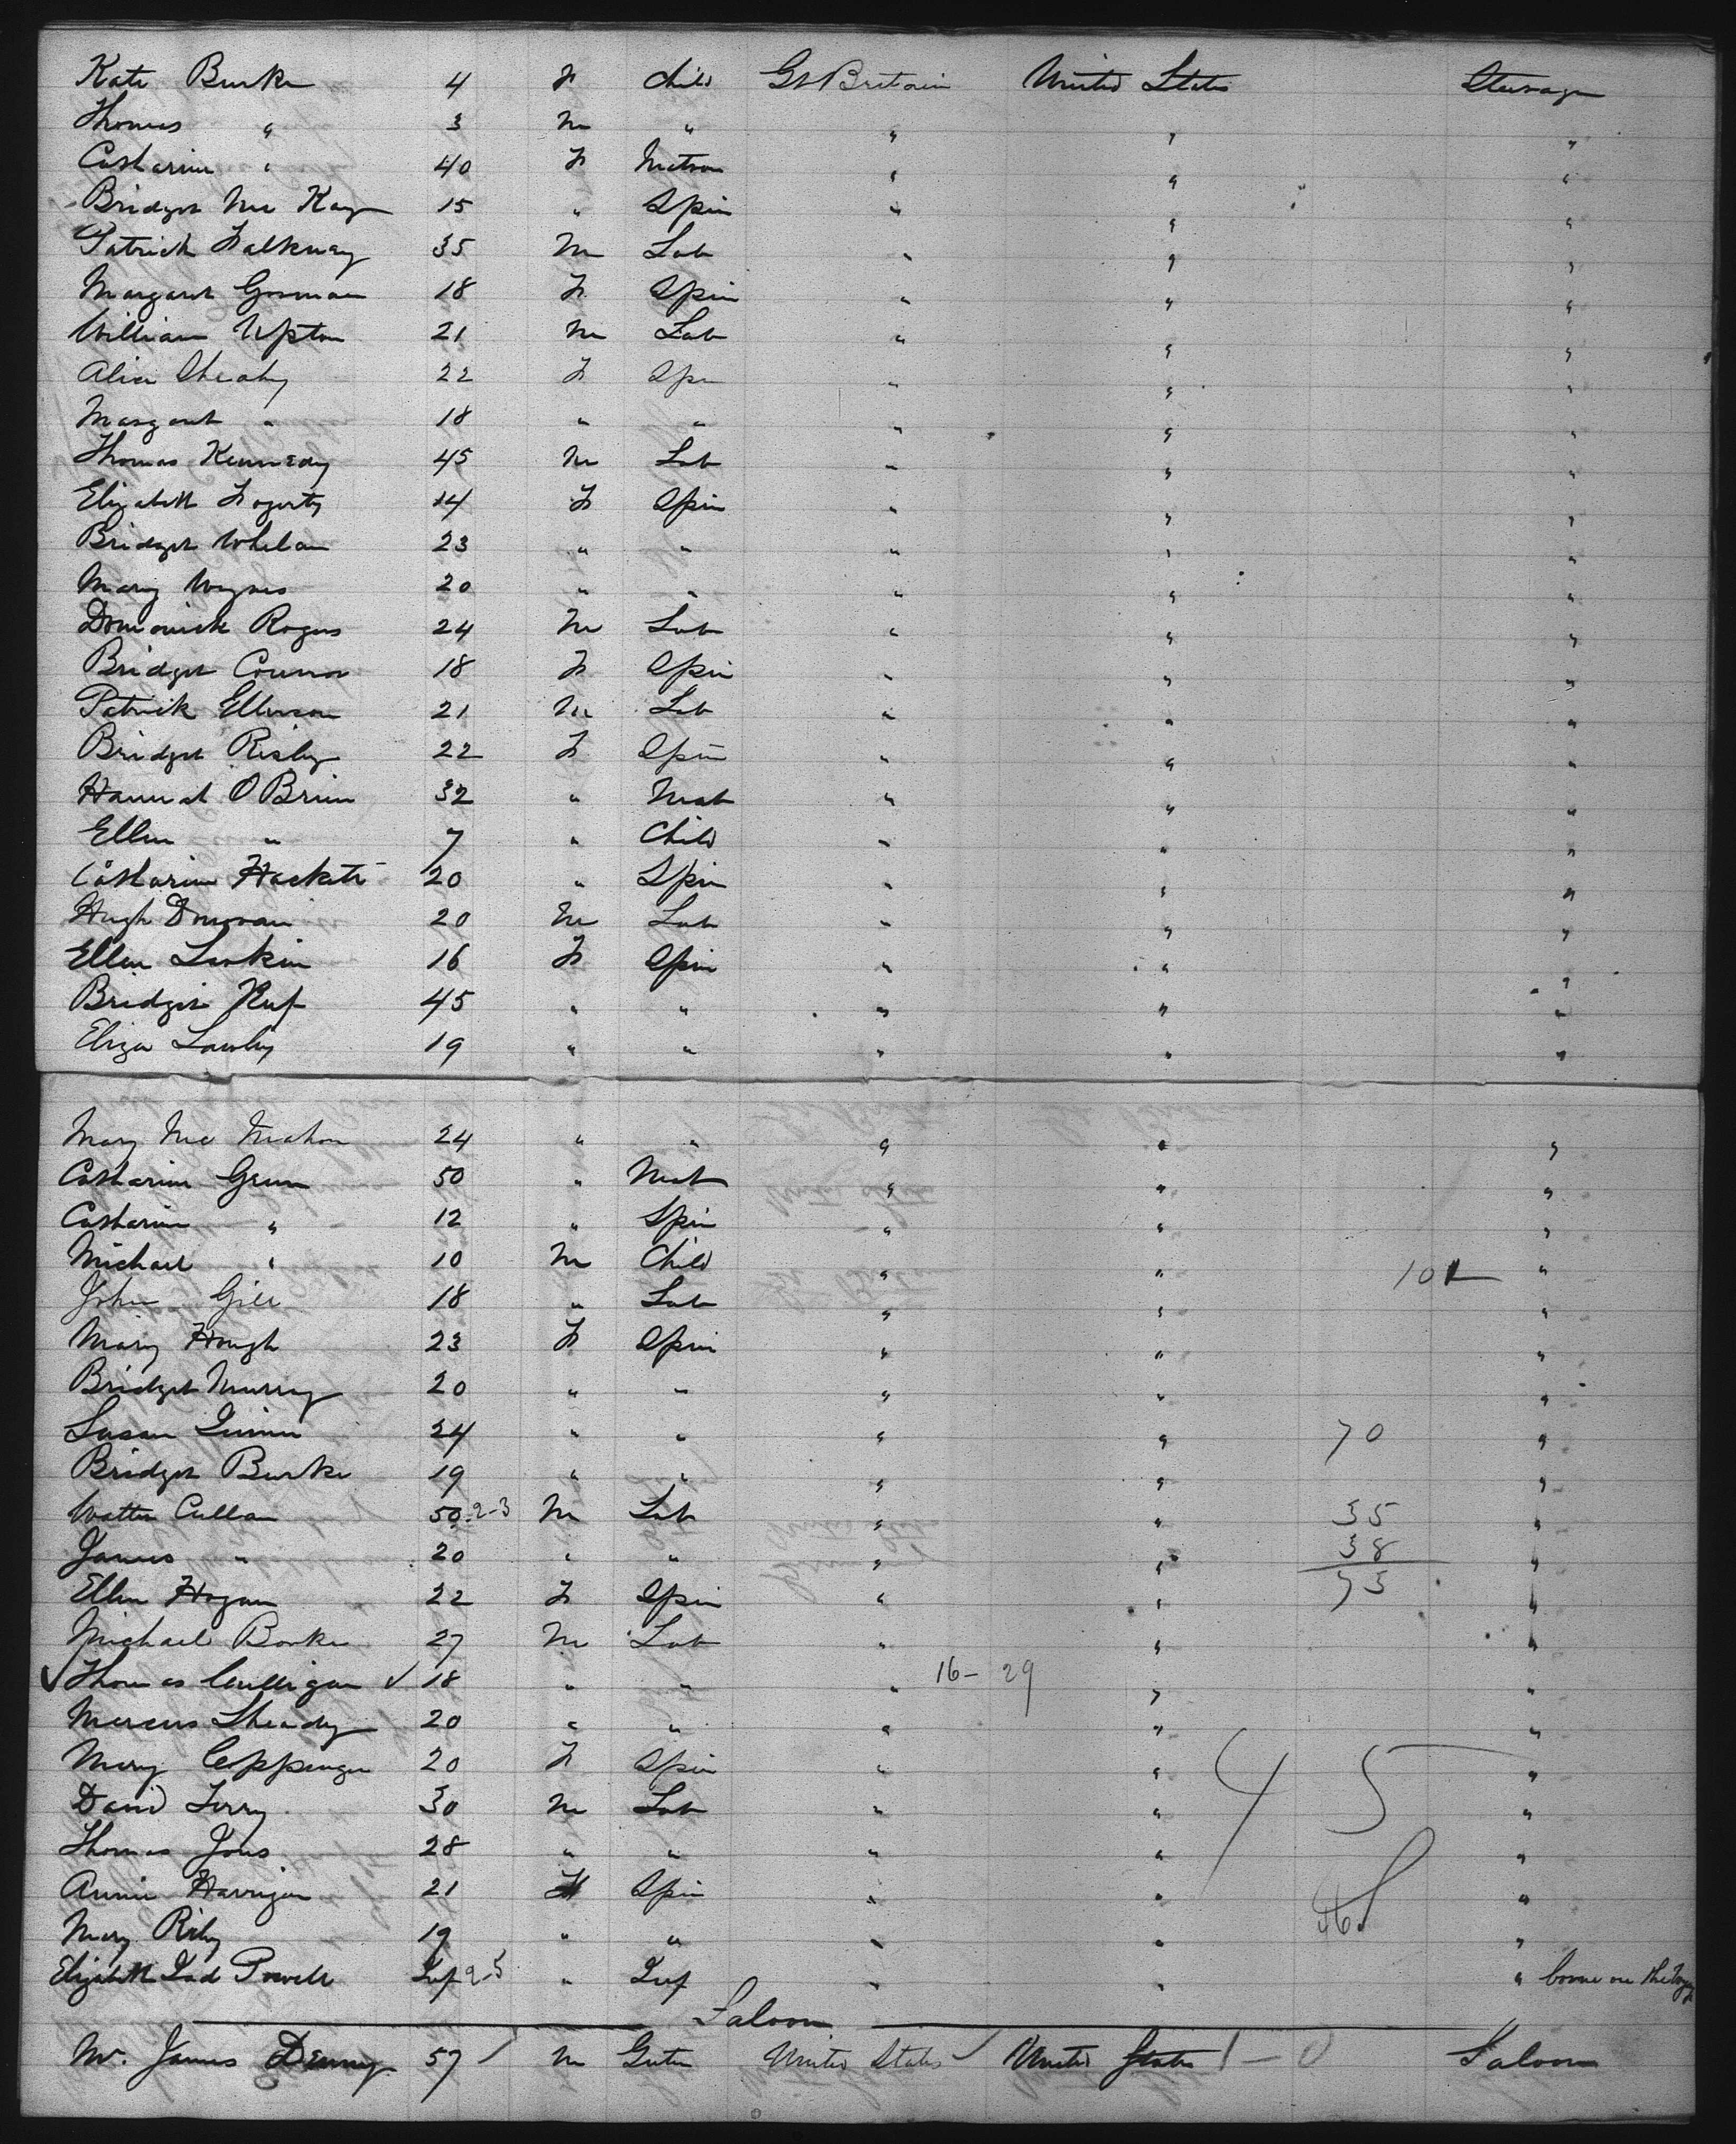 Kate Burke 4 F Child Gt Britain United States Steerage
Thomas " 3 M " " " "
Catharine " 40 F Matron " " "
Bridget Mc Kay 15 " Spin " " "
Patrick 35 M Lab " " "
Margaret Gorman 18 F Spin " " "
William Upton 21 M Lab " " "
Alice Sheahy 22 F Spin " " "
Margaret " 18 " " " " "
Thomas Kennedy 45 M Lab " " "
Elizabeth Fogerty 14 F Spin " " "
Bridget Whelan 23 " " " " "
Mary 20 " " " " "
Dominick Rogers 24 M Lab " " "
Bridget Connor 18 F Spin " " "
Patrick 21 M Lab " " "
Bridget 22 F Spin " " "
Hannah O Brien 32 " Mat " " "
Ellen " 7 " Child " " "
Catharine Hackett 20 " Spin " " "
Hugh Donovan 20 M Lab " " "
Ellen Larkin 16 F Spin " " "
Bridget 45 " " " " "
Eliza 19 " " " " "
Mary Mc Mahon 24 " " " " "
Catharine Green 50 " Mat " " "
Catharine " 12 " Spin " " "
Michael " 10 M Child " " "
John Gill 18 " Lab " " "
Mary Hough 23 F Spin " " "
Bridget Murray 20 " " " " "
Susan Quinn 24 " " " " 70 "
Bridget Burke 19 " " " " "
Walter Cullan 50 2-3 M Lab " " 35 "
James " 20 " " " " 38 "
Ellen Hogan 22 F Spin " " 73 "
Michael Borke 27 M Lab " " "
Thomas Culligan 18 " " " 16- 29 " "
Marcus Sheady 20 " " " " "
Mary Coppinger 20 F Spin " " "
David Terry 30 M Lab " " 4 5 "
Thomas Jones 28 " " " " "
Annie Harrigan 21 F Spin " " "
Mary Riley 19 " " " " "
Elizabeth Powell Inf 2-3 " Inf " " " borne on the
Saloon
Mr. James Denny 57 M United States United States 1-0 Saloon